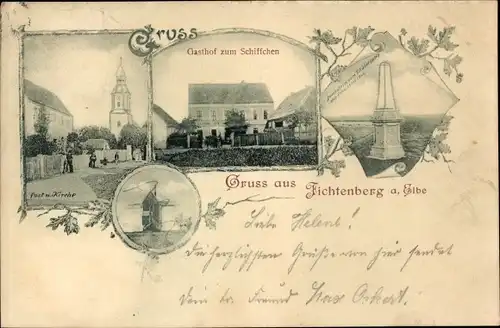 Gruss
Gasthof zum Schiffchen
Post u. Kirche
Gruss aus Fichtenberg a. Elbe
Liebe Helene!
Die herzlichsten Grüße von hier sendet
Dein Freund Max